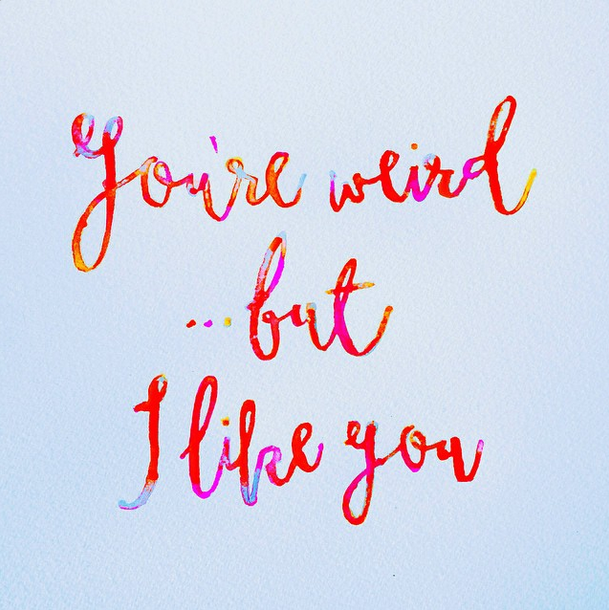 You're weird
...but
I like you